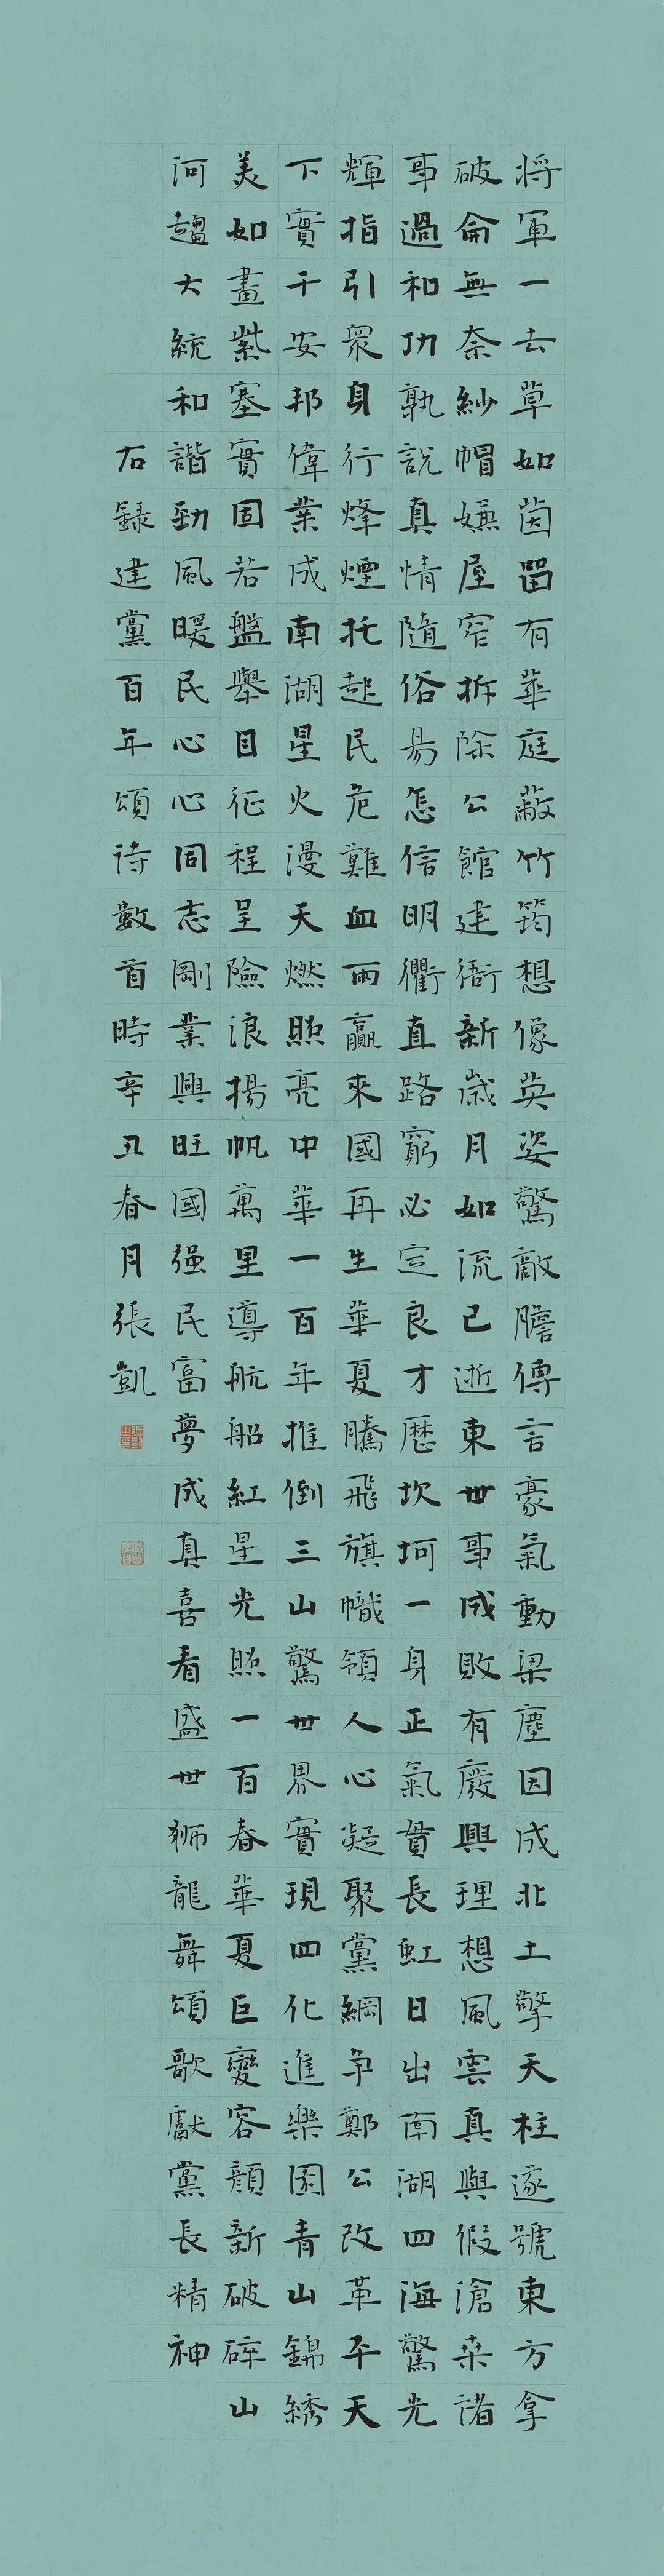 將軍一去草如茵留有華庭蔽竹筠想像英姿驚敵膽傳言豪氣動梁塵因成北土擎天柱遂號東方拿
破侖無奈紗帽嫌屋窄拆除公館建衙新歲月如流已逝東世事成敗有廢興理想風雲真與假滄桑諸
事過和功孰說真情隨俗易怎信明衢直路窮必定良才歷坎坷一身正氣貫長虹日出南湖四海驚光
輝指引衆身行烽煙托起民危難血雨贏來國再生華夏騰飛旗幟領人心凝聚黨綱爭鄭公改革平天
下實干安邦偉業成南湖星火漫天燃照亮中華一百年推倒三山驚世界實現四化進樂園青山錦綉
美如畫紫塞實固若盤舉目征程呈險浪揚帆萬里導航船紅星光照一百春華夏巨變容顔新破碎山
河趨大統和諧勁風暖民心心同志剛業興旺國强民富夢成真喜看盛世獅龍舞頌歌獻黨長精神
右録建黨百年頌詩數首時辛丑春月張凱